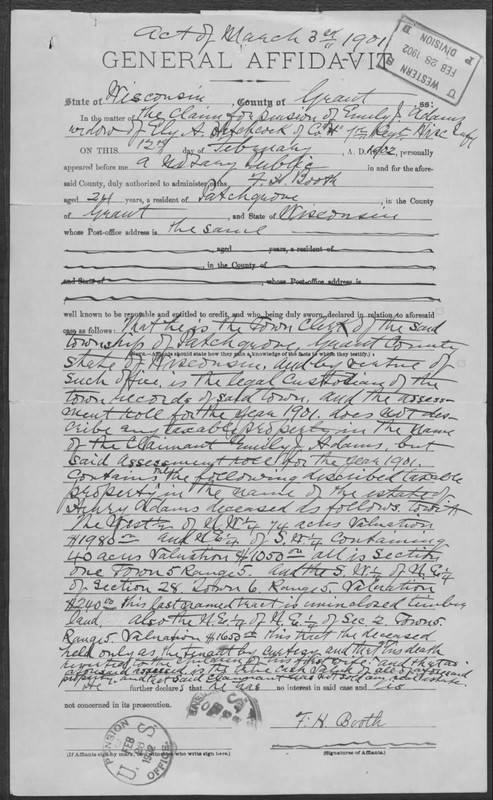 Act of March 3rd 1901
WESTERN
FEB 28 1902
DIVISION
GENERAL AFFIDAVIT
State of Wisconsin, County of Grant ss:
In the matter of the Claim for pension of Emily J. Adams
widow of Ely A. Hitchcock of Co "H" 7th Regt Wisc Infy
ON THIS 12th day of February, A. D. 1902, personally
appeared before me a Notary Public in and for the afore-
said County, duly authorized to administer oaths, F. H. Booth
aged 24 years, a resident of Patchgrove, in the County
of Grant, and State of Wisconsin
whose Post-office address is the same
, aged years, a resident of
, in the County of
and State of , whose Post-office address is
well known to be reputable and entitled to credit, and who, being duly sworn, declared in relation to aforesaid
case as follows: That he is the Town Clerk of the said
township of Patchgrove, Grant County
(NOTE.—Affiants should state how they gain a knowledge of the facts to which they testify.)
State of Wisconsin, and by virtue of
such office, is the legal Custodian of the
town records of said town, and the assess-
ment roll for the year 1901, does not des-
cribe any taxable property in the name
of the Claimant Emily J. Adams, but
said assessment roll for the year 1901.
Contains the following described taxable
property in the name of the estate of
Henry Adams deceased as follows, towit
The West ½ of N.W. ¼ 74 acres Valuation
$1980 and of S.W. ¼ containing
40 acres Valuation $1050 all in Section
one Town 5 Range 5. and the S.W. ¼ of N.E. ¼
of Section 28. Town 6. Range 5. Valuation
$240 this last named tract is uninclosed timber
land. also the N.E. ¼ of N.E. ¼ of Sec. 2 Town 5.
Range 5. Valuation $1650 This tract the deceased
held only as the tenant by curtesy and that his death
reverted to the children of his first wife and that
property and that said Claimant has not sold any real estate
He further declares that he has no interest in said case and is
not concerned in its prosecution.
F. H. Booth
U. S. PENSION OFFICE
FEB 20 1902
(If Affiants sign by mark, two witnesses who write sign here.)
(Signatures of Affiants.)